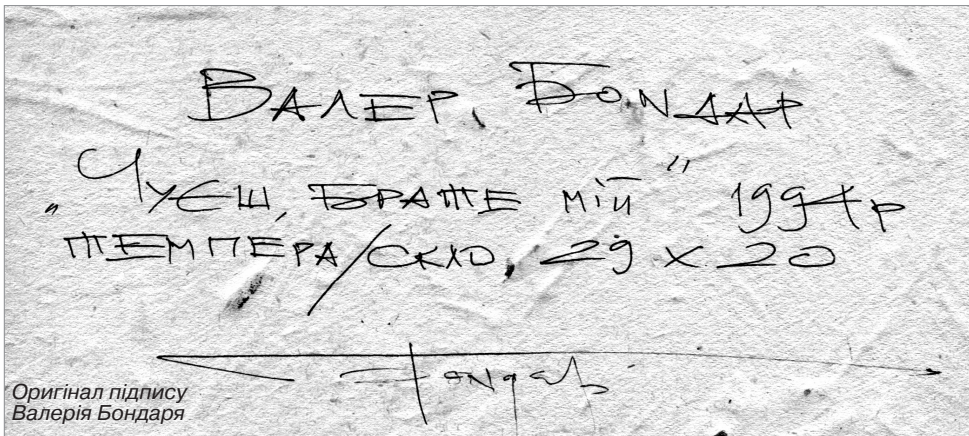 ВАЛЕР. БОNДАР
„ЧУЄШ, БРАТЕ МІЙ" 1994р
ТЕМПЕРА/СКЛО, 29 х 20
Бондар
Оригінал підпису
Валерія Бондаря